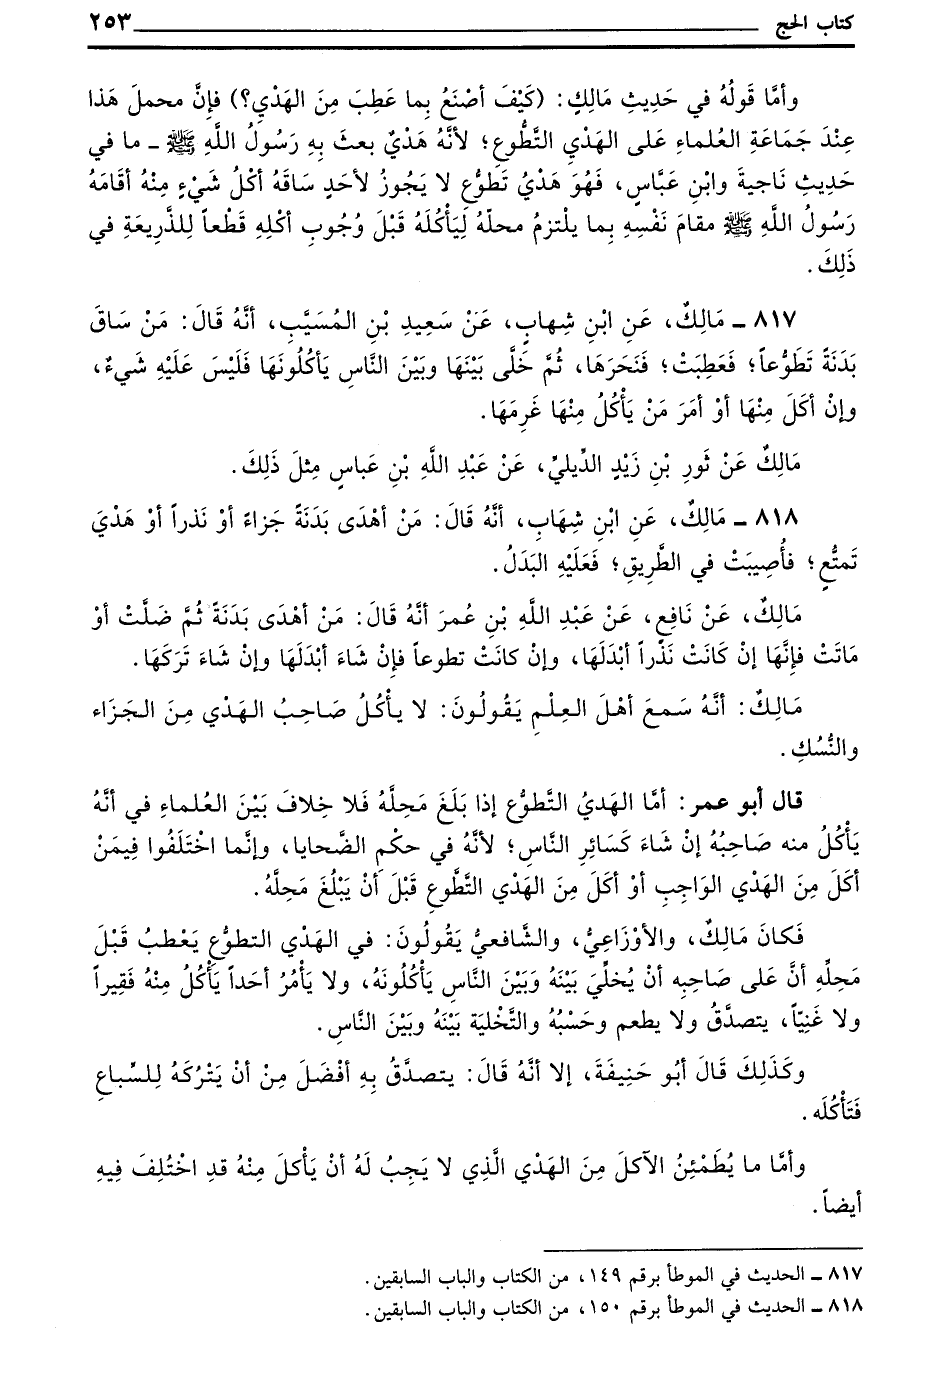 كتاب الحج ٢٥٣
وأمَّا قَولُهُ في حَدِيثِ مَالِكٍ: (كَيْفَ أصْنَعُ بِما عَطِبَ مِنَ الهَدْيِ؟) فإنَّ محملَ هَذا
عِنْدَ جَمَاعَةِ العُلماءِ عَلى الهَدْيِ التَّطُوعِ؛ لأنَّهُ هَدْيٌ بعثَ بِهِ رَسُولُ اللَّهِ ﷺ ـ ما في
حَدِيثِ نَاجيةَ وابْنِ عَبَّاسٍ، فَهُوَ هَدْيُ تَطوُّعٍ لا يَجُوزُ لأحَدٍ سَاقَهُ أكْلُ شَيْءٍ مِنْهُ أقَامَهُ
رَسُولُ اللَّهِ ﷺ مقامَ نَفْسِهِ بِما يلْتزمُ محلّهُ لِيَأكُلَهُ قَبْلَ وُجُوبِ أكْلِهِ قَطْعاً لِلذَّرِيعَةِ في
ذَلِكَ.
٨١٧ ـ مَالِكٌ، عَنِ ابْنِ شِهابٍ، عَنْ سَعِيدِ بْنِ المُسَيَّبِ، أنَّهُ قَالَ: مَنْ سَاقَ
بَدَنَةً تَطَوُّعاً؛ فَعَطِبَتْ؛ فَنَحَرَهَا، ثُمَّ خَلَّى بَيْنَهَا وبَيْنَ النَّاسِ يَأكُلُونَهَا فَلَيْسَ عَلَيْهِ شَيءٌ،
وإنْ أكَلَ مِنْهَا أوْ أمَرَ مَنْ يَأْكُلُ مِنْهَا غَرِمَهَا.
مَالِكٌ عَنْ ثَورِ بْنِ زَيْدٍ الدِّيليِّ، عَنْ عَبْدِ اللَّهِ بْنِ عَباسٍ مِثلَ ذَلِكَ.
٨١٨ ـ مَالِكٌ، عَنِ ابْنِ شِهَابٍ، أنَّهُ قَالَ: مَنْ أهْدَى بَدَنَةً جَزاءً أوْ نَذراً أوْ هَدْيَ
تَمتُّعٍ؛ فأُصِيبَتْ في الطَّرِيقِ؛ فَعَلَيْهِ البَدَلُ.
مَالِكٌ، عَنْ نَافِعٍ، عَنْ عَبْدِ اللَّهِ بْنِ عُمرَ أنَّهُ قَالَ: مَنْ أهْدَى بَدَنَةً ثُمَّ ضَلَّتْ أوْ
مَاتَتْ فإنَّهَا إنْ كَانَتْ نَذْراً أبْدَلَهَا، وإنْ كانَتْ تطوعاً فإنْ شَاءَ أبْدَلَهَا وإنْ شَاءَ تَرَكَهَا.
مَالِكٌ: أنَّهُ سَمعَ أهْلَ العِلْمِ يَقُولُونَ: لا يأْكُلُ صَاحِبُ الهَدْيِ مِنَ الجَزَاء
والنُّسُكِ.
قال أبو عمر: أمَّا الهَديُ التَّطوُّع إذا بَلَغَ مَحِلَّهُ فَلا خِلافَ بَيْنَ العُلماءِ في أنَّهُ
يَأْكُلُ منه صَاحِبُهُ إنْ شَاءَ كَسَائِرِ النَّاسِ؛ لأنَّهُ في حكْمِ الضَّحايا، وإنَّما اخْتَلَفُوا فِيمَنْ
أكَلَ مِنَ الهَدْي الوَاجِبِ أوْ أكَلَ مِنَ الهَدْي التَّطَّوعِ قَبْلَ أنْ يَبْلُغَ مَحِلَّهُ.
فَكانَ مَالِكٌ، والأوْزَاعِيُّ، والشَّافعيُّ يَقُولُونَ: في الهَدْيِ التطوُّعِ يَعْطبُ قَبْلَ
مَحِلِّهِ أنَّ عَلى صَاحِبِهِ أنْ يُخلِّيَ بَيْنَهُ وَبَيْنَ النَّاسِ يَأْكُلُونَهُ، ولا يَأمُرُ أحَداً يَأْكُلُ مِنْهُ فَقِيراً
ولا غَنِيّاً، يتصدَّقُ ولا يطعم وحَسْبُهُ والتَّخْليَة بَيْنَهُ وبَيْنَ النَّاسِ.
وكَذَلِكَ قَالَ أبُو حَنِيفَةَ، إلا أنَّهُ قَالَ: يتصدَّقُ بِهِ أفْضَلَ مِنْ أنْ يَتْرُكَهُ لِلسِّباعِ
فَتَأْكُلَه.
وأمَّا ما يُطَمْئِنُ الآكلَ مِنَ الهَدْي الَّذِي لا يَجِبُ لَهُ أنْ يَأكلَ مِنْهُ قدِ اخْتُلِفَ فِيهِ
أيضاً.
٨١٧ ـ الحديث في الموطأ برقم ١٤٩، من الكتاب والباب السابقين.
٨١٨ ـ الحديث في الموطأ برقم ١٥٠، من الكتاب والباب السابقين.